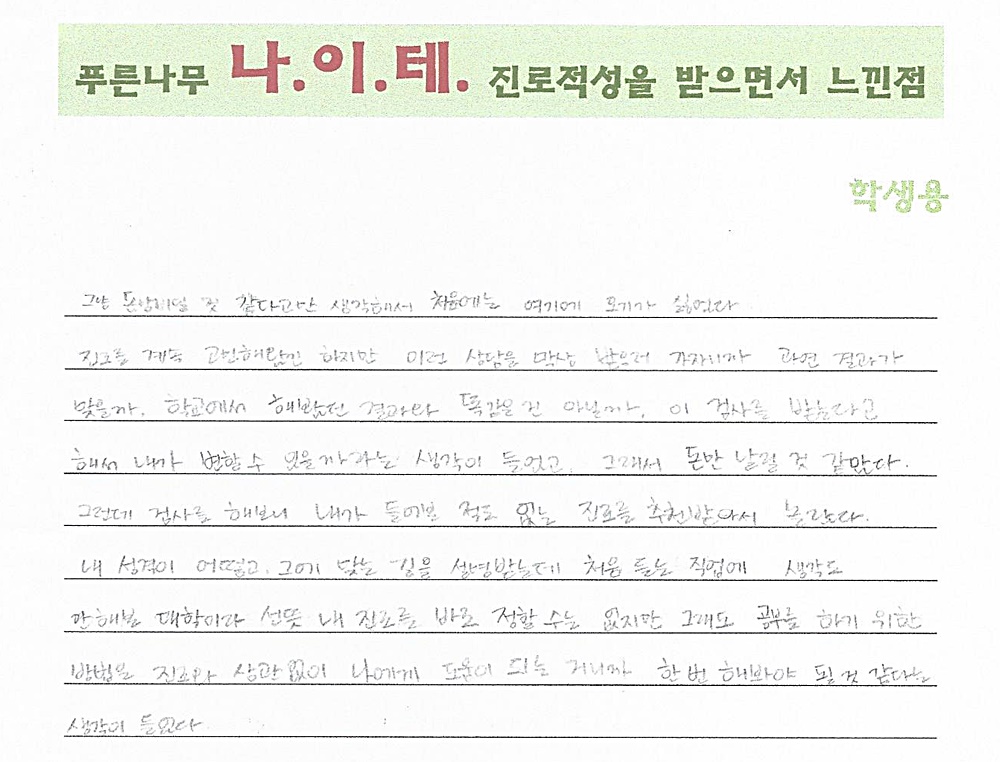 푸른나무 나.이.테. 진로적성을 받으면서 느낀점
학생용
그냥 돈낭비일 것 같다고만 생각해서 처음에는 여기에 오기가 싫었다.
진로를 계속 고민해왔긴 하지만 이런 상담을 막상 받으러 가자니까 과연 결과가
맞을까, 학교에서 해봤던 결과와 똑같은 건 아닐까, 이 검사를 받는다고
해서 내가 변할 수 있을까라는 생각이 들었고, 그래서 돈만 날릴 것 같았다.
그런데 검사를 해보니 내가 들어본 적도 없는 진로를 추천받아서 놀랐다.
내 성격이 어떻고, 그에 맞는 길을 설명받는데 처음 듣는 직업에 생각도
안해본 대학이라 선뜻 내 진로를 바로 정할 수는 없지만 그래도 공부를 하기 위한
방법은 진로와 상관없이 나에게 도움이 되는 거니까 한 번 해봐야 될 것 같다는
생각이 들었다.